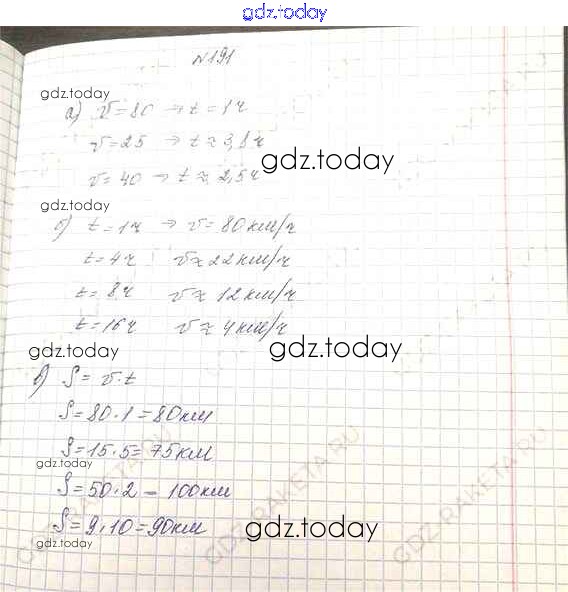 gdz.today
№191
gdz.today
а) v=80 → t=1ч
v=25 → t≈3,8ч
gdz.today
v=40 → t≈2,5ч
gdz.today
б) t=1ч → v=80км/ч
t=4ч v≈22км/ч
t=8ч v≈12км/ч
t=16ч v≈4км/ч
gdz.today gdz.today
в) S=v·t
S=80·1=80км
S=15·5=75км
gdz.today
S=50·2=100км
S=9·10=90км gdz.today
gdz.today
GDZ-RAKETA.RU